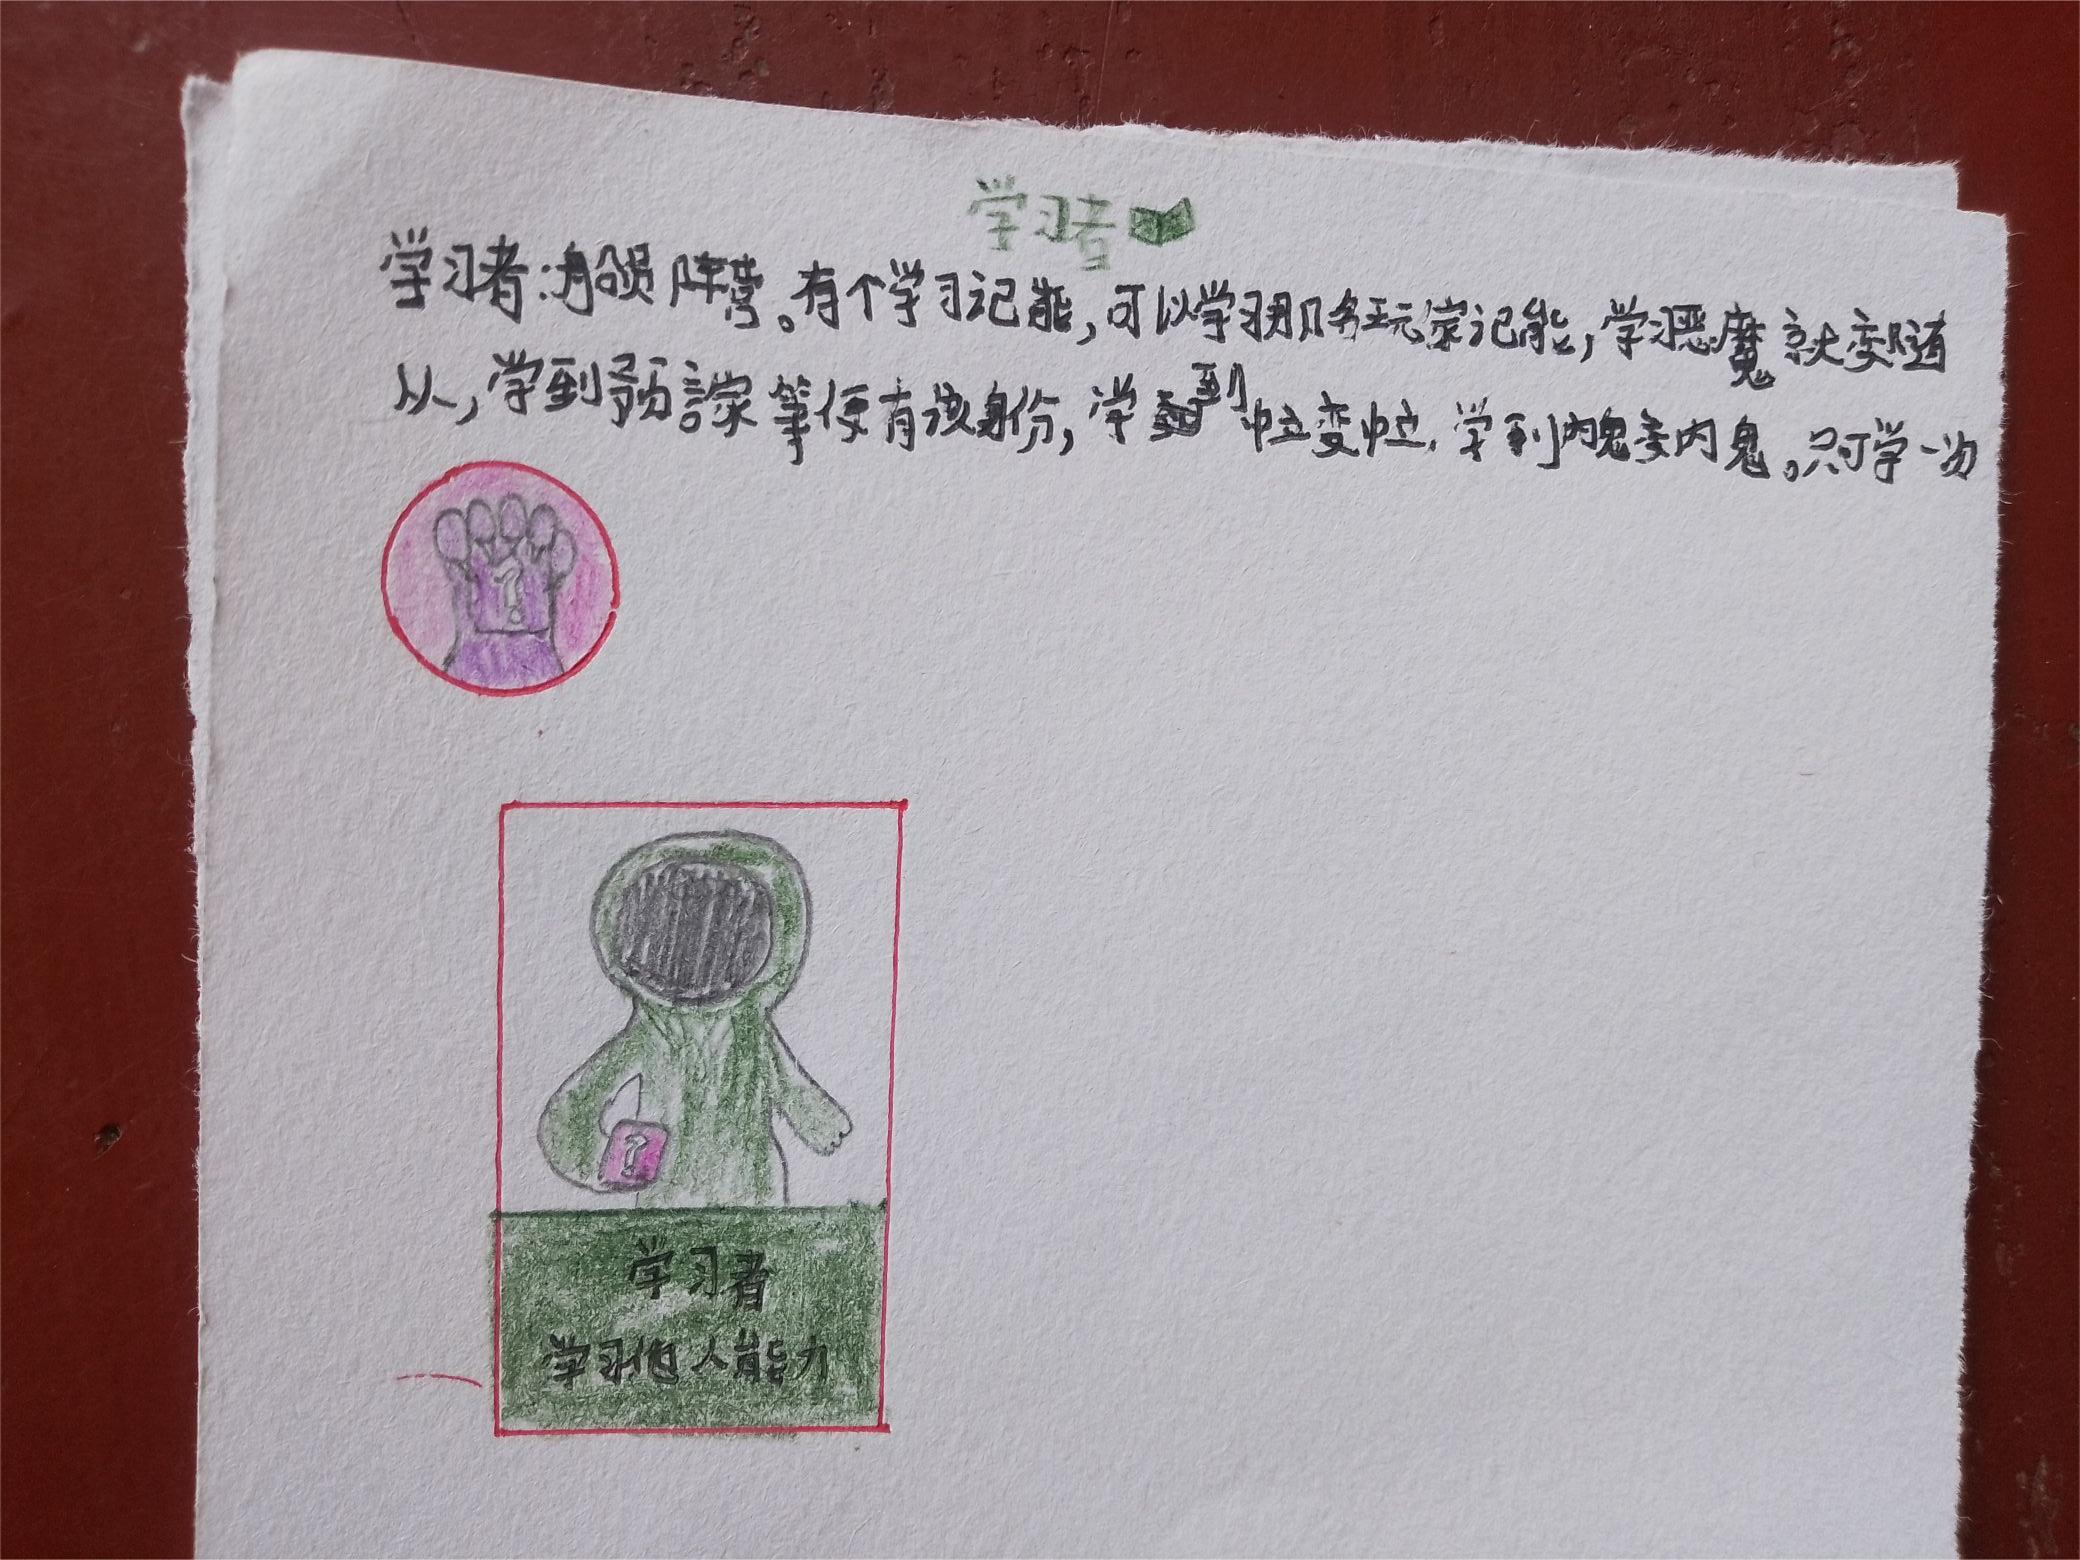 学习者
学习者:船员阵营。有个学习记能,可以学习那名玩家记能,学习恶魔就变随
从,学到预言家等便有该身份,学到中立变中立,学到内鬼变内鬼。只可学一次
?
?
学习者
学习他人能力